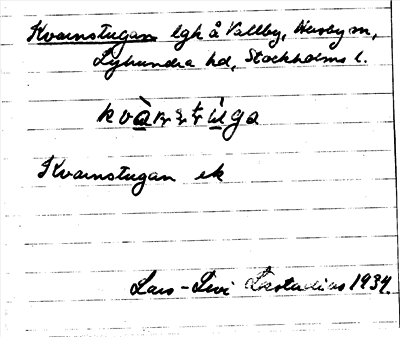 Kvarnstugan lgh å Vallby, Husby m,
Lyhundra hd, Stockholms l.
Kvarnstugan ek
Lars-Levi Læstadius 1934.